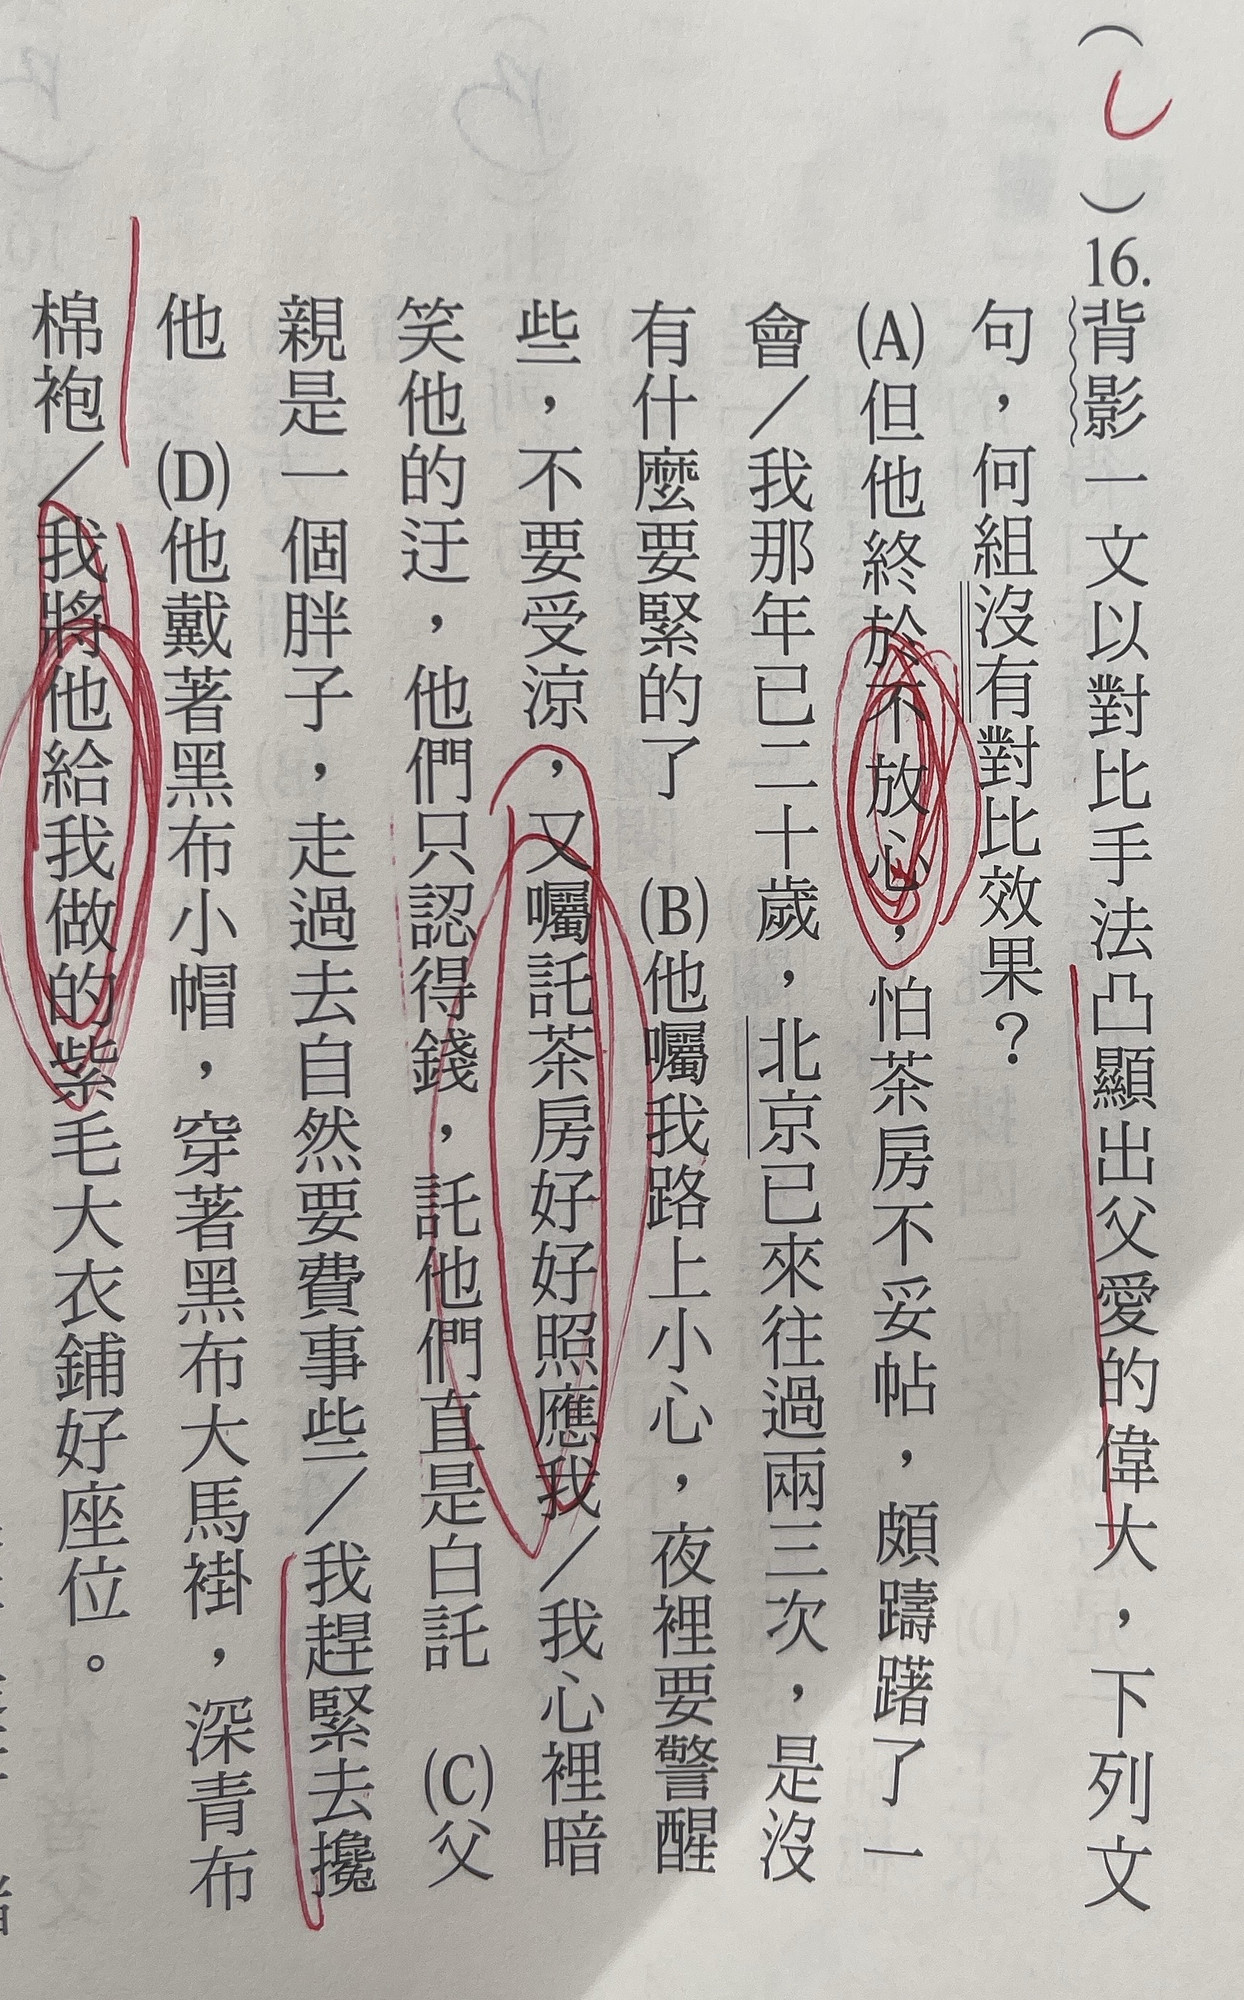 （C）16.背影一文以對比手法凸顯出父愛的偉大，下列文
句，何組沒有對比效果？
(A)但他終於不放心，怕茶房不妥帖，頗躊躇了一
會／我那年已二十歲，北京已來往過兩三次，是沒
有什麼要緊的了　(B)他囑我路上小心，夜裡要警醒
些，不要受涼，又囑託茶房好好照應我／我心裡暗
笑他的迂，他們只認得錢，託他們直是白託　(C)父
親是一個胖子，走過去自然要費事些／我趕緊去攙
他　(D)他戴著黑布小帽，穿著黑布大馬褂，深青布
棉袍／我將他給我做的紫毛大衣鋪好座位。